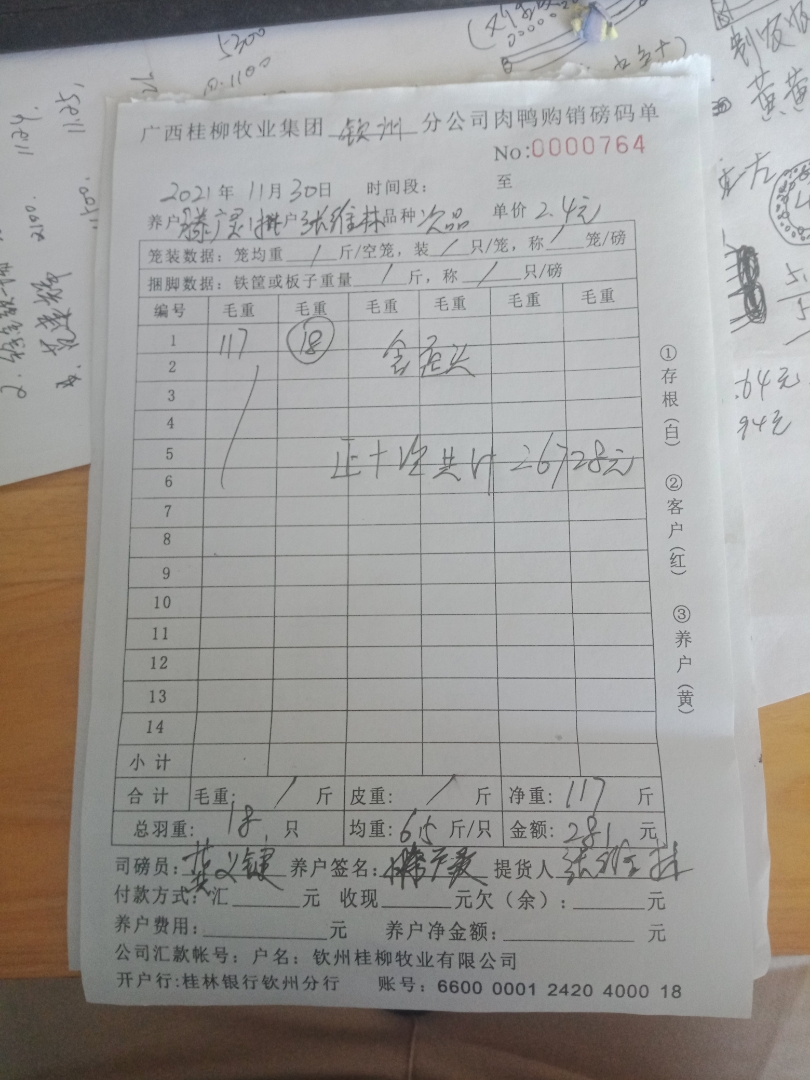 5300
广西桂柳牧业集团 钦州 分公司肉鸭购销磅码单
No:0000764
2021年 11月30日 时间段: 至
养户 户 张维林 品种 次品 单价 2.4元
笼装数据: 笼均重 / 斤/空笼, 装 / 只/笼, 称 / 笼/磅
捆脚数据: 铁筐或板子重量 / 斤, 称 / 只/磅
编号 毛重 毛重 毛重 毛重 毛重 毛重
1 117 18
2
3
4
5 正十次共计 26728元
6
7
8
9
10
11
12
13
14
小计
合计 毛重: / 斤 皮重: / 斤 净重: 117 斤
总羽重: 18 只 均重: 6.5 斤/只 金额: 281 元
司磅员: 黄义键 养户签名: 提货人 张维林
付款方式: 汇 元 收现 元欠(余): 元
养户费用: 元 养户净金额: 元
公司汇款帐号: 户名: 钦州桂柳牧业有限公司
开户行:桂林银行钦州分行 账号: 6600 0001 2420 4000 18
①存根(白) ②客户(红) ③养户(黄)
黄黄
.64元
94元